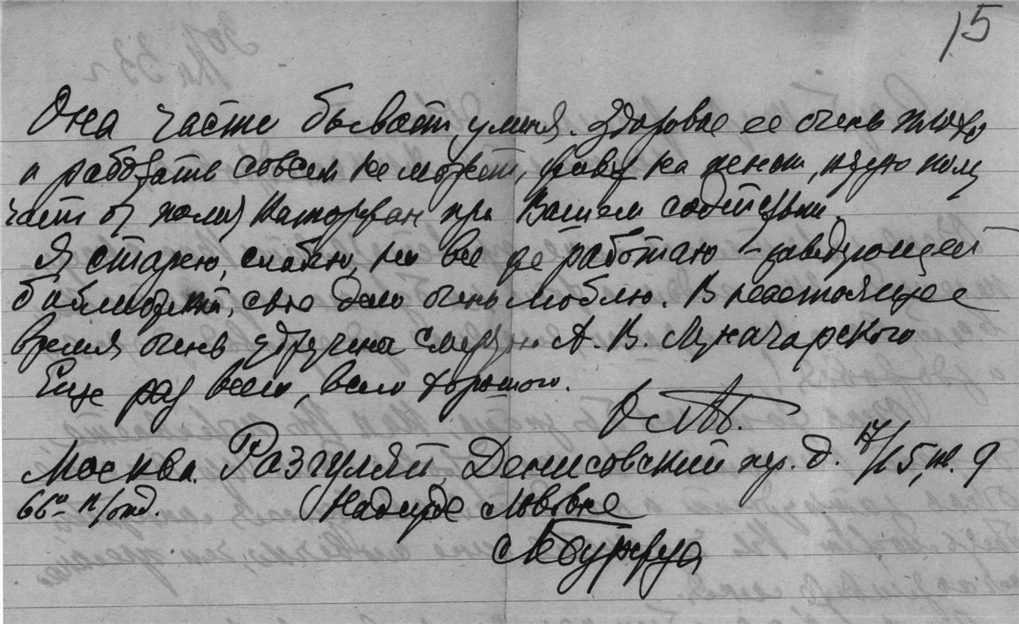 15
Она часто бывает у меня. Здоровье ее очень плохо
и работать совсем не может, живет на пенсию,
при Вашем содействии.
Я старею, слабею, но все же работаю – заведующей
библиотекой, свое дело очень люблю. В настоящее
время очень удручена смертью А. В. Луначарского
Еще раз всего, всего хорошего.
Москва. Разгуляй, Денисовский пер. д. 17/15, кв. 9
66ое п/отд. Надежде Львовне